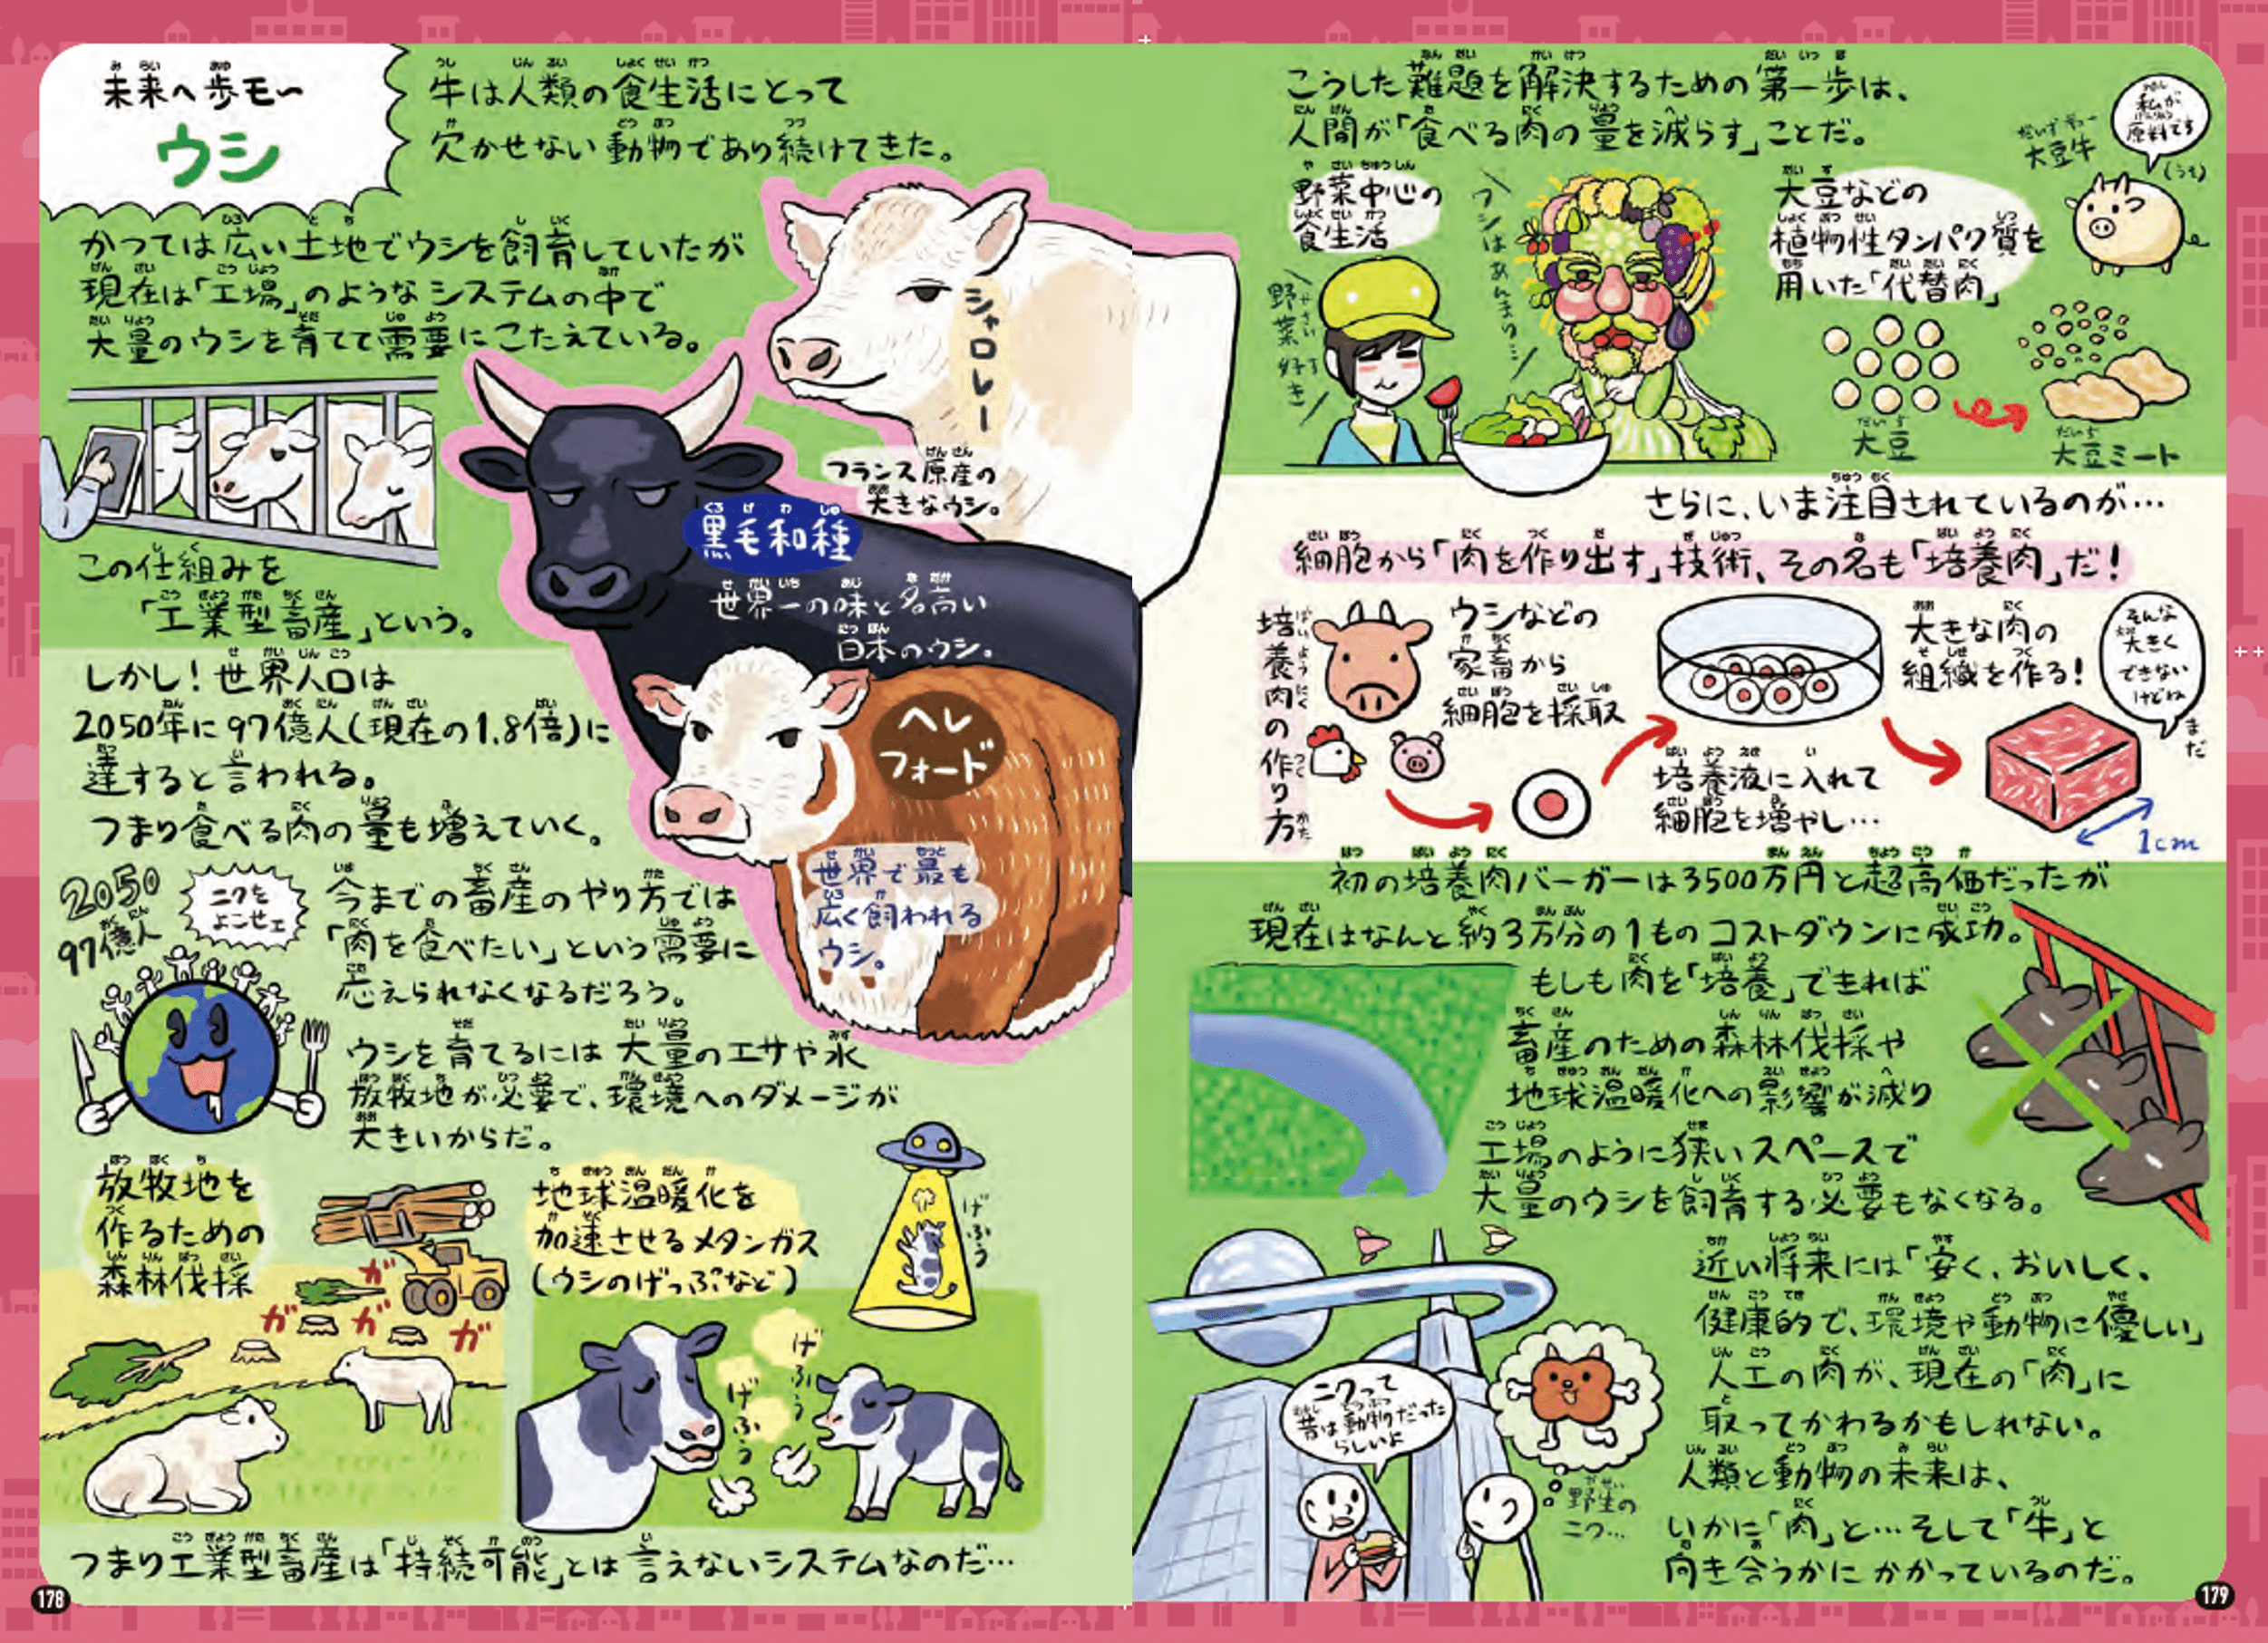 未来へ歩モ〜
ウシ
牛は人類の食生活にとって
欠かせない動物であり続けてきた。
かつては広い土地でウシを飼育していたが
現在は「工場」のようなシステムの中で
大量のウシを育てて需要にこたえている。
この仕組みを
「工業型畜産」という。
シャロレー
フランス原産の
大きなウシ。
黒毛和種
世界一の味と名高い
日本のウシ。
ヘレ
フォード
世界で最も
広く飼われる
ウシ。
しかし!世界人口は
2050年に97億人(現在の1.8倍)に
達すると言われる。
つまり食べる肉の量も増えていく。
2050
97億人
ニクを
よこせェ
今までの畜産のやり方では
「肉を食べたい」という需要に
応えられなくなるだろう。
ウシを育てるには大量のエサや水
放牧地が必要で、環境へのダメージが
大きいからだ。
放牧地を
作るための
森林伐採
ガ
ガ
ガ
ガ
地球温暖化を
加速させるメタンガス
(ウシのげっぷなど)
げふぅ
げふぅ
げふぅ
つまり工業型畜産は「持続可能」とは言えないシステムなのだ…
178
こうした難題を解決するための第一歩は、
人間が「食べる肉の量を減らす」ことだ。
野菜中心の
食生活
野菜好き
ワシはあんまり…
大豆などの
植物性タンパク質を
用いた「代替肉」
大豆牛
(うそ)
私が
原料です
大豆
大豆ミート
さらに、いま注目されているのが…
細胞から「肉を作り出す」技術、その名も「培養肉」だ!
培養肉の作り方
ウシなどの
家畜から
細胞を採取
培養液に入れて
細胞を増やし…
大きな肉の
組織を作る!
そんな
大きく
できない
けどね
まだ
1cm
初の培養肉バーガーは3500万円と超高価だったが
現在はなんと約3万分の1ものコストダウンに成功。
もしも肉を「培養」できれば
畜産のための森林伐採や
地球温暖化への影響が減り
工場のように狭いスペースで
大量のウシを飼育する必要もなくなる。
近い将来には「安く、おいしく、
健康的で、環境や動物に優しい」
人工の肉が、現在の「肉」に
取ってかわるかもしれない。
人類と動物の未来は、
いかに「肉」と…そして「牛」と
向き合うかにかかっているのだ。
ニクって
昔は動物だった
らしいよ
野生の
ニク…
179